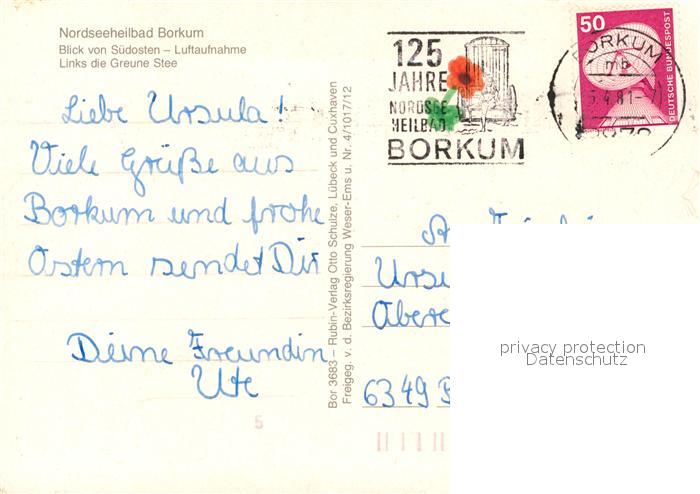 Nordseeheilbad Borkum
Blick von Südosten – Luftaufnahme
Links die Greune Stee
Liebe Ursula!
Viele Grüße aus
Borkum und frohe
Ostern sendet Dir
Deine Freundin
Ute
5
Bor 3683 – Rubin-Verlag Otto Schulze, Lübeck und Cuxhaven
Freigeg. v. d. Bezirksregierung Weser-Ems u. Nr. 4/1017/12
125
JAHRE
NORDSEE
HEILBAD
BORKUM
50
DEUTSCHE BUNDESPOST
BORKUM
mb
5.4.81-
6349
privacy protection
Datenschutz